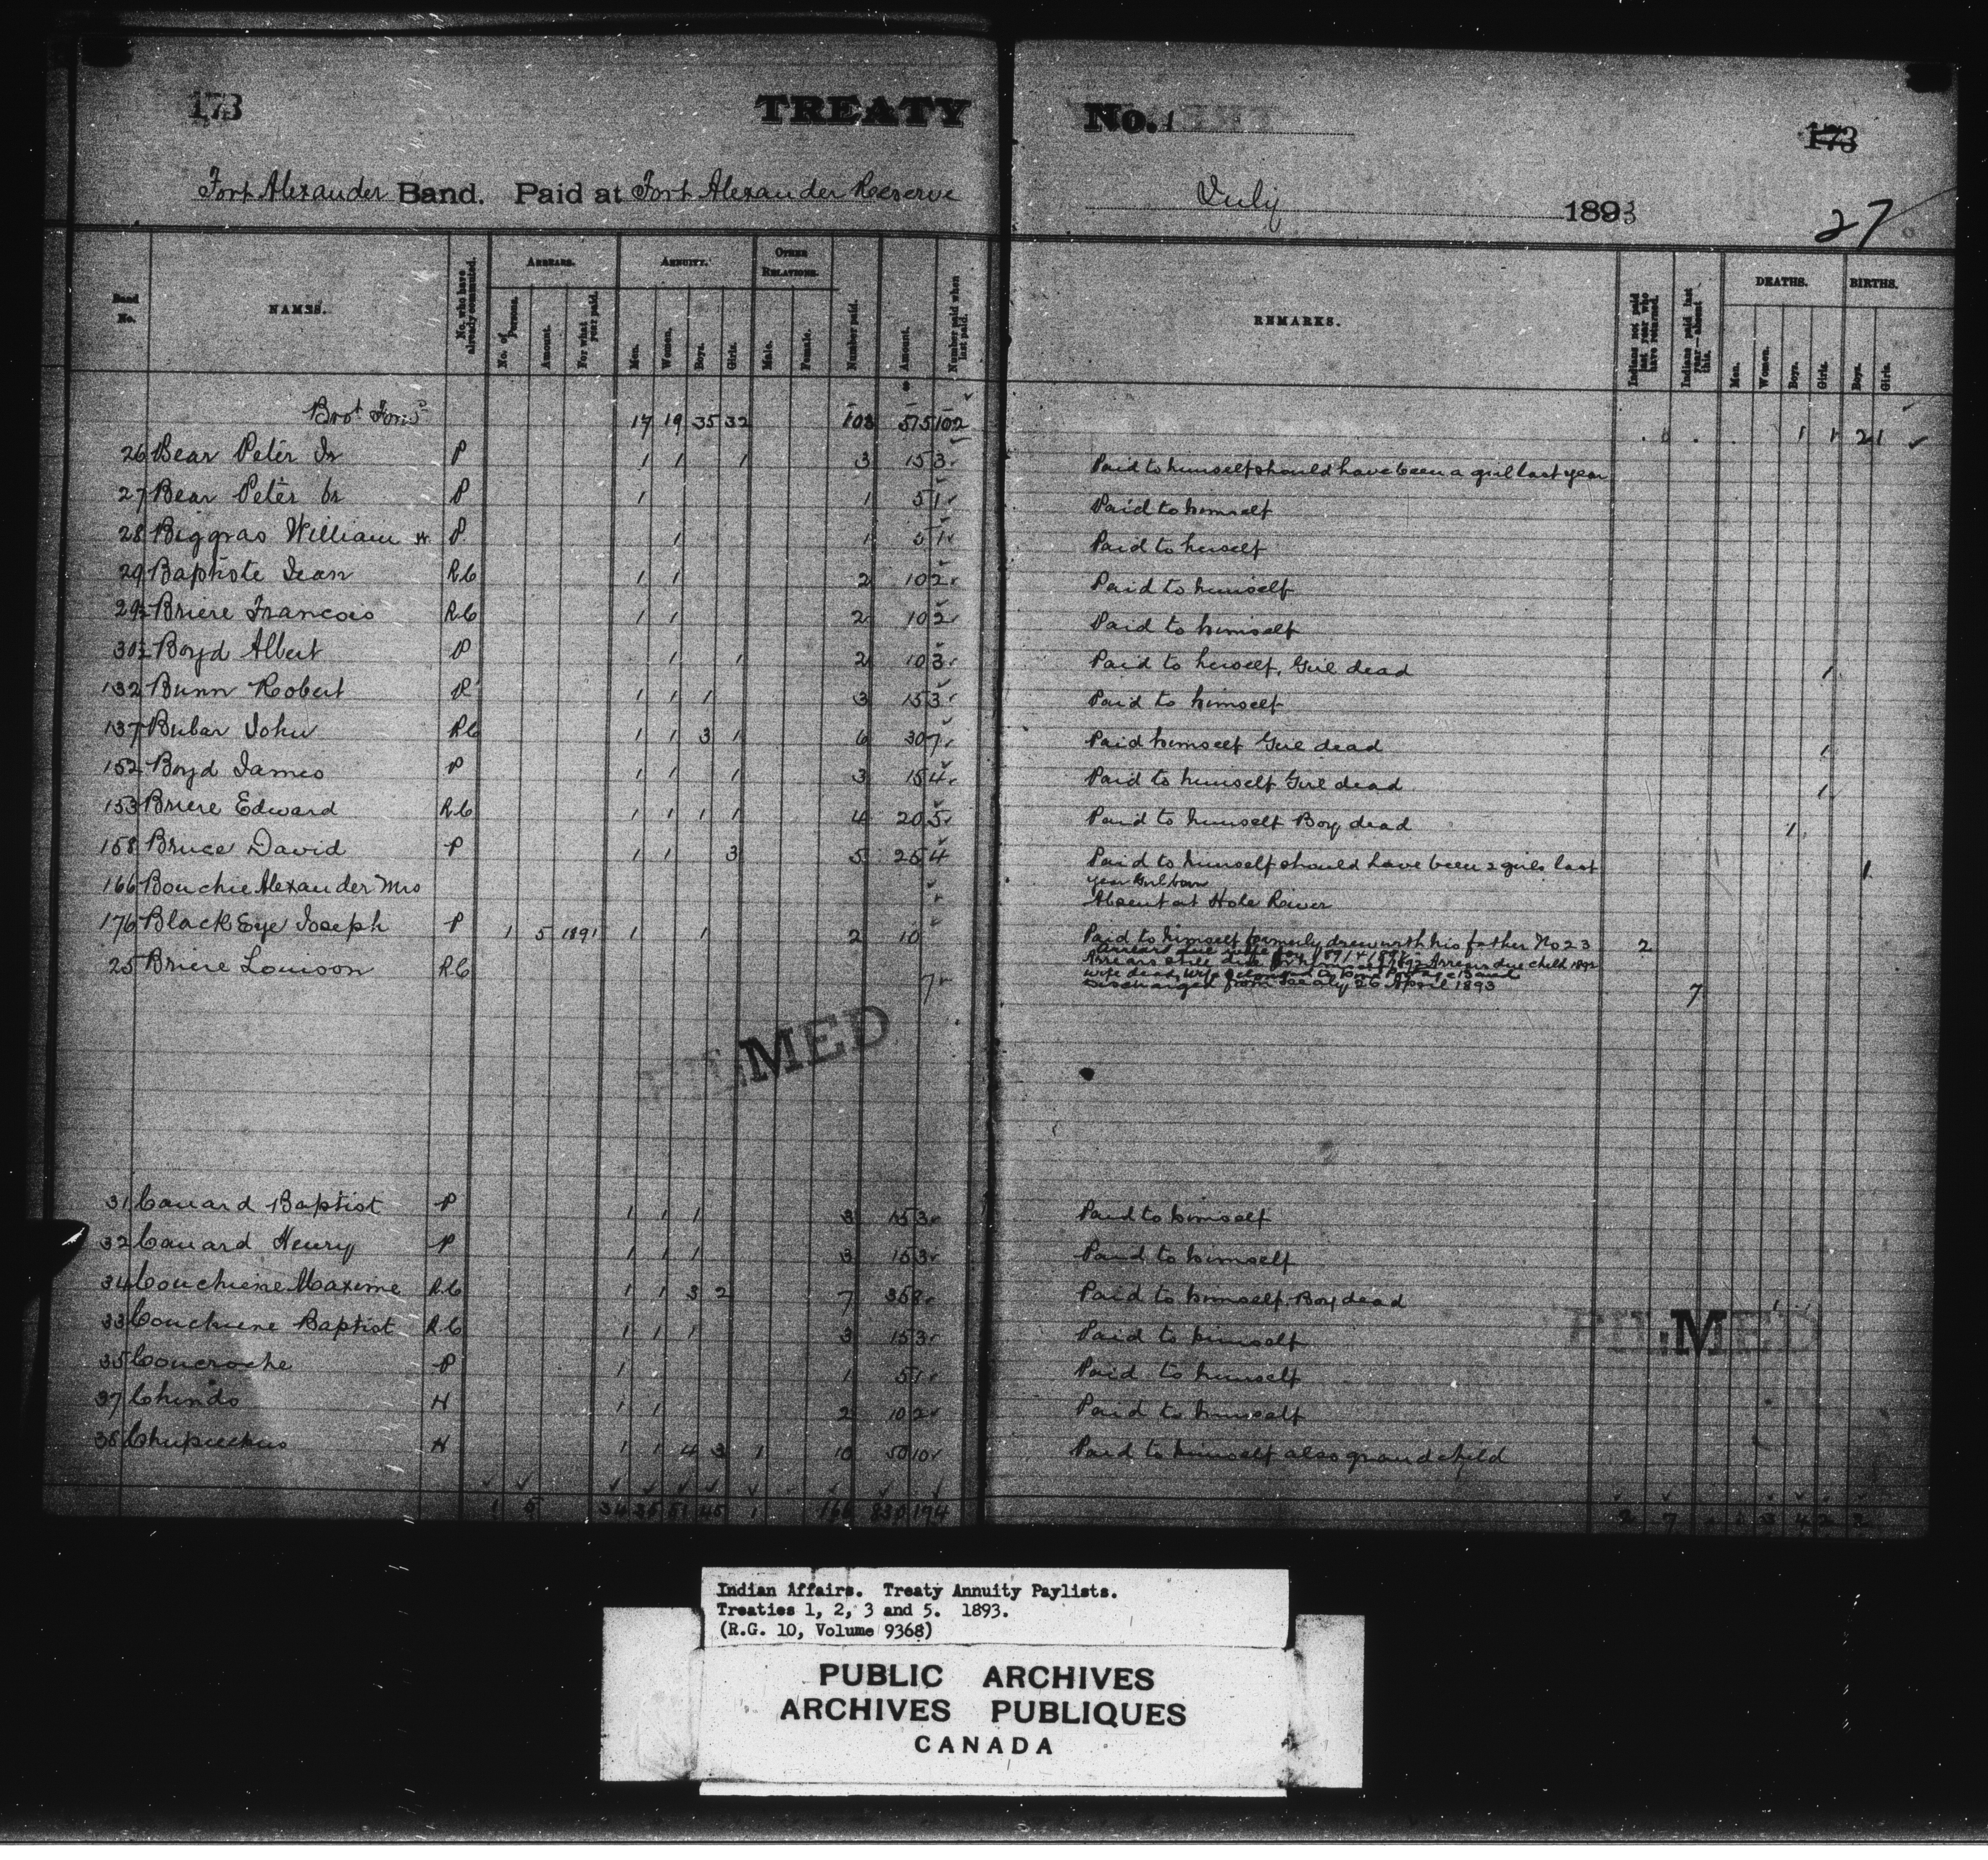 173
TREATY No. 1
173
Fort Alexander Band. Paid at Fort Alexander Reserve July 1893
27
Band No. NAMES. No. who have already commuted. ARREARS. No. of Persons. Amount. For what year paid. ANNUITY. Men. Women. Boys. Girls. OTHER RELATIONS. Male. Female. Number paid. Amount. Number paid when last paid. REMARKS. Indians not paid last year who have returned. Indians paid last year—absent this. DEATHS. Men. Women. Boys. Girls. BIRTHS. Boys. Girls.
Brot Forwd 17 19 35 32 103 515 102 1 1 2 1
26 Bear Peter Jr P 1 1 1 3 15 3 Paid to himself should have been a girl last year
27 Bear Peter Sr P 1 1 5 1 Paid to himself
28 Biggras William W P 1 1 5 1 Paid to herself
29 Baptiste Jean R.C 1 1 2 10 2 Paid to himself
29½ Briere Francois R.C 1 1 2 10 2 Paid to himself
30½ Boyd Albert P 1 1 2 10 3 Paid to herself. Girl dead 1
132 Bunn Robert P 1 1 1 3 15 3 Paid to himself
137 Bubar John R.C 1 1 3 1 6 30 7 Paid himself Girl dead 1
152 Boyd James P 1 1 1 3 15 4 Paid to himself Girl dead 1
153 Briere Edward R.C 1 1 1 1 4 20 5 Paid to himself Boy dead 1
158 Bruce David P 1 1 3 5 25 4 Paid to himself should have been 2 girls last 1
year Girl born
166 Bouchie Alexander Mrs Absent at Hole River
176 Black Eye Joseph P 1 5 1891 1 1 2 10 Paid to himself formerly drew with his father No 23 2
Arrears still due Arrears due child 1892
wife dead, wife belonged to Band
25 Briere Louison R.C 7 Discharged from Treaty 26 April 1893 7
FILMED
31 Canard Baptist P 1 1 1 3 15 3 Paid to himself
32 Canard Henry P 1 1 1 3 15 3 Paid to himself
34 Couchiene Maxime R.C 1 1 3 2 7 35 8 Paid to himself. Boy dead 1
33 Couchiene Baptist R.C 1 1 1 3 15 3 Paid to himself
FILMED
35 Coucroche P 1 1 5 1 Paid to himself
37 Chindo H 1 1 2 10 2 Paid to himself
38 H 1 1 4 3 1 10 50 10 Paid to himself also grandchild
1 5 34 35 51 45 1 166 830 194 2 7
Indian Affairs. Treaty Annuity Paylists.
Treaties 1, 2, 3 and 5. 1893.
(R.G. 10, Volume 9368)
PUBLIC ARCHIVES
ARCHIVES PUBLIQUES
CANADA